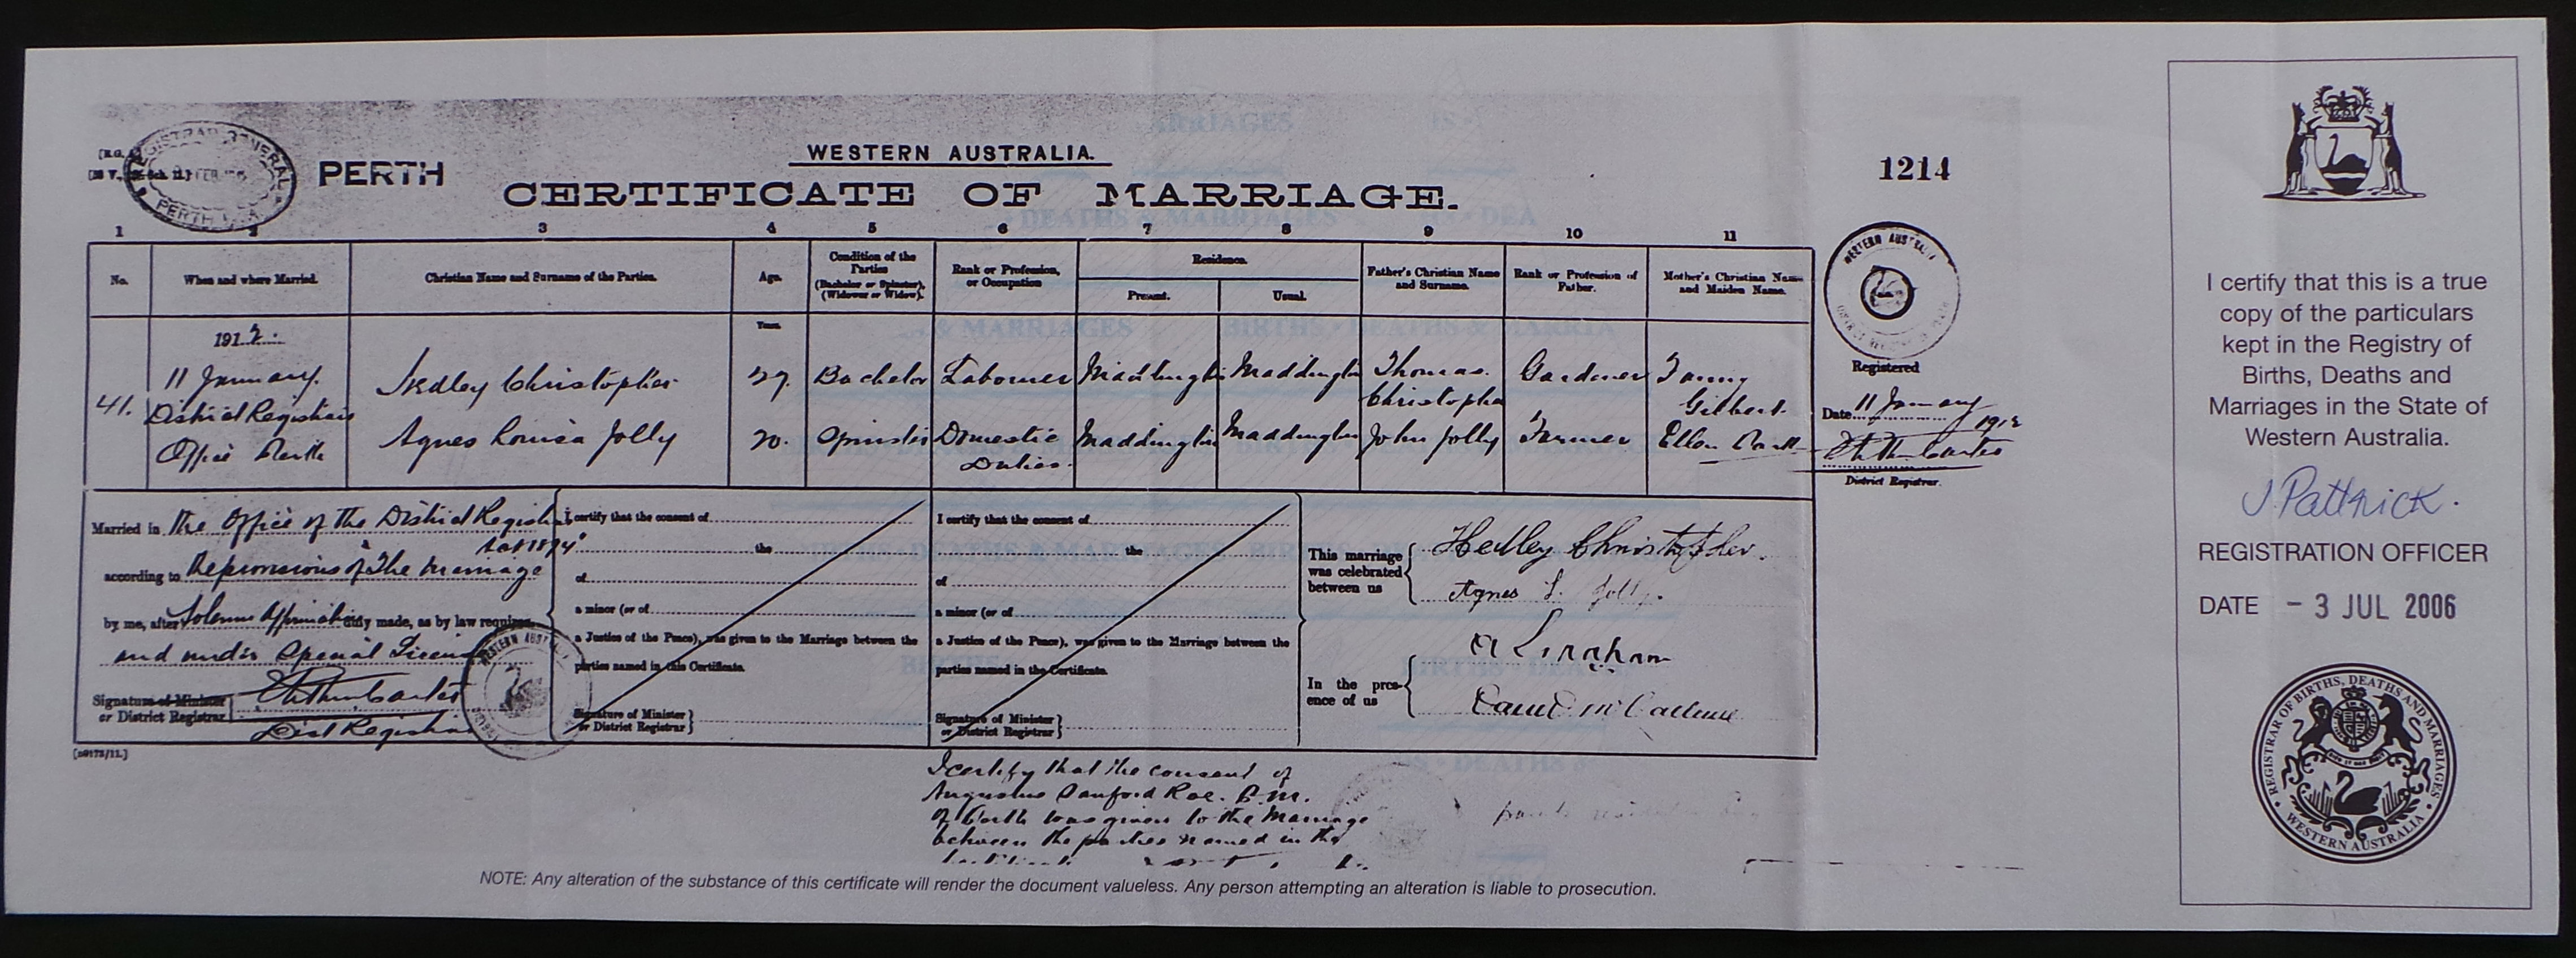 WESTERN AUSTRALIA.
PERTH
1214
CERTIFICATE OF MARRIAGE.
REGISTRAR GENERAL
PERTH
1 2 3 4 5 6 7 8 9 10 11
No.
When and where Married.
Christian Name and Surname of the Parties.
Age.
Condition of the Parties (Bachelor or Spinster), (Widower or Widow).
Rank or Profession, or Occupation
Residence.
Present.
Usual.
Father's Christian Name and Surname.
Rank or Profession of Father.
Mother's Christian Name and Maiden Name.
Years.
1912.
41.
11 January.
District Registrars
Office Perth
Hedley Christopher
Agnes Louisa Jolly
Bachelor
Spinster
Labourer
Domestic
Duties.
Maddington
Maddington
Maddington
Maddington
Thomas
Christopher
John Jolly
Gardener
Farmer
Fanny
Gilbert
Ellen
WESTERN AUSTRALIA
Registered
Date 11 January 1912
District Registrar.
Married in the Office of the District Registrar
according to the provisions of The Marriage
Act 1894
by me, after Solemn Affirmation duly made, as by law required
and under Special License
Signature of Minister
or District Registrar
Dist Registrar
I certify that the consent of
the
of
a minor (or of
a Justice of the Peace), was given to the Marriage between the
parties named in this Certificate.
Signature of Minister
or District Registrar
I certify that the consent of
the
of
a minor (or of
a Justice of the Peace), was given to the Marriage between the
parties named in the Certificate.
Signature of Minister
or District Registrar
This marriage
was celebrated
between us
Hedley Christopher.
Agnes L. Jolly.
In the pres-
ence of us
I certify that the consent of
Augustus Sanford Roe.
of Perth was given to the Marriage
between the parties named in the
NOTE: Any alteration of the substance of this certificate will render the document valueless. Any person attempting an alteration is liable to prosecution.
I certify that this is a true
copy of the particulars
kept in the Registry of
Births, Deaths and
Marriages in the State of
Western Australia.
J. Pattrick.
REGISTRATION OFFICER
DATE - 3 JUL 2006
REGISTRAR OF BIRTHS, DEATHS AND MARRIAGES
WESTERN AUSTRALIA